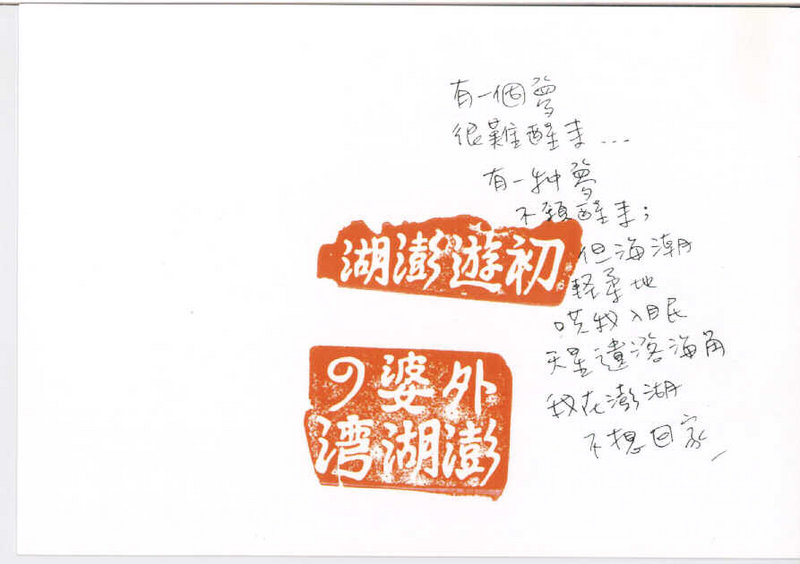 有一個夢
很難醒来...
有一种夢
不願醒来；
但海潮
輕柔地
哄我入眠
天星遺落海角
我在澎湖
不想回家,
初遊澎湖
外婆の
澎湖湾